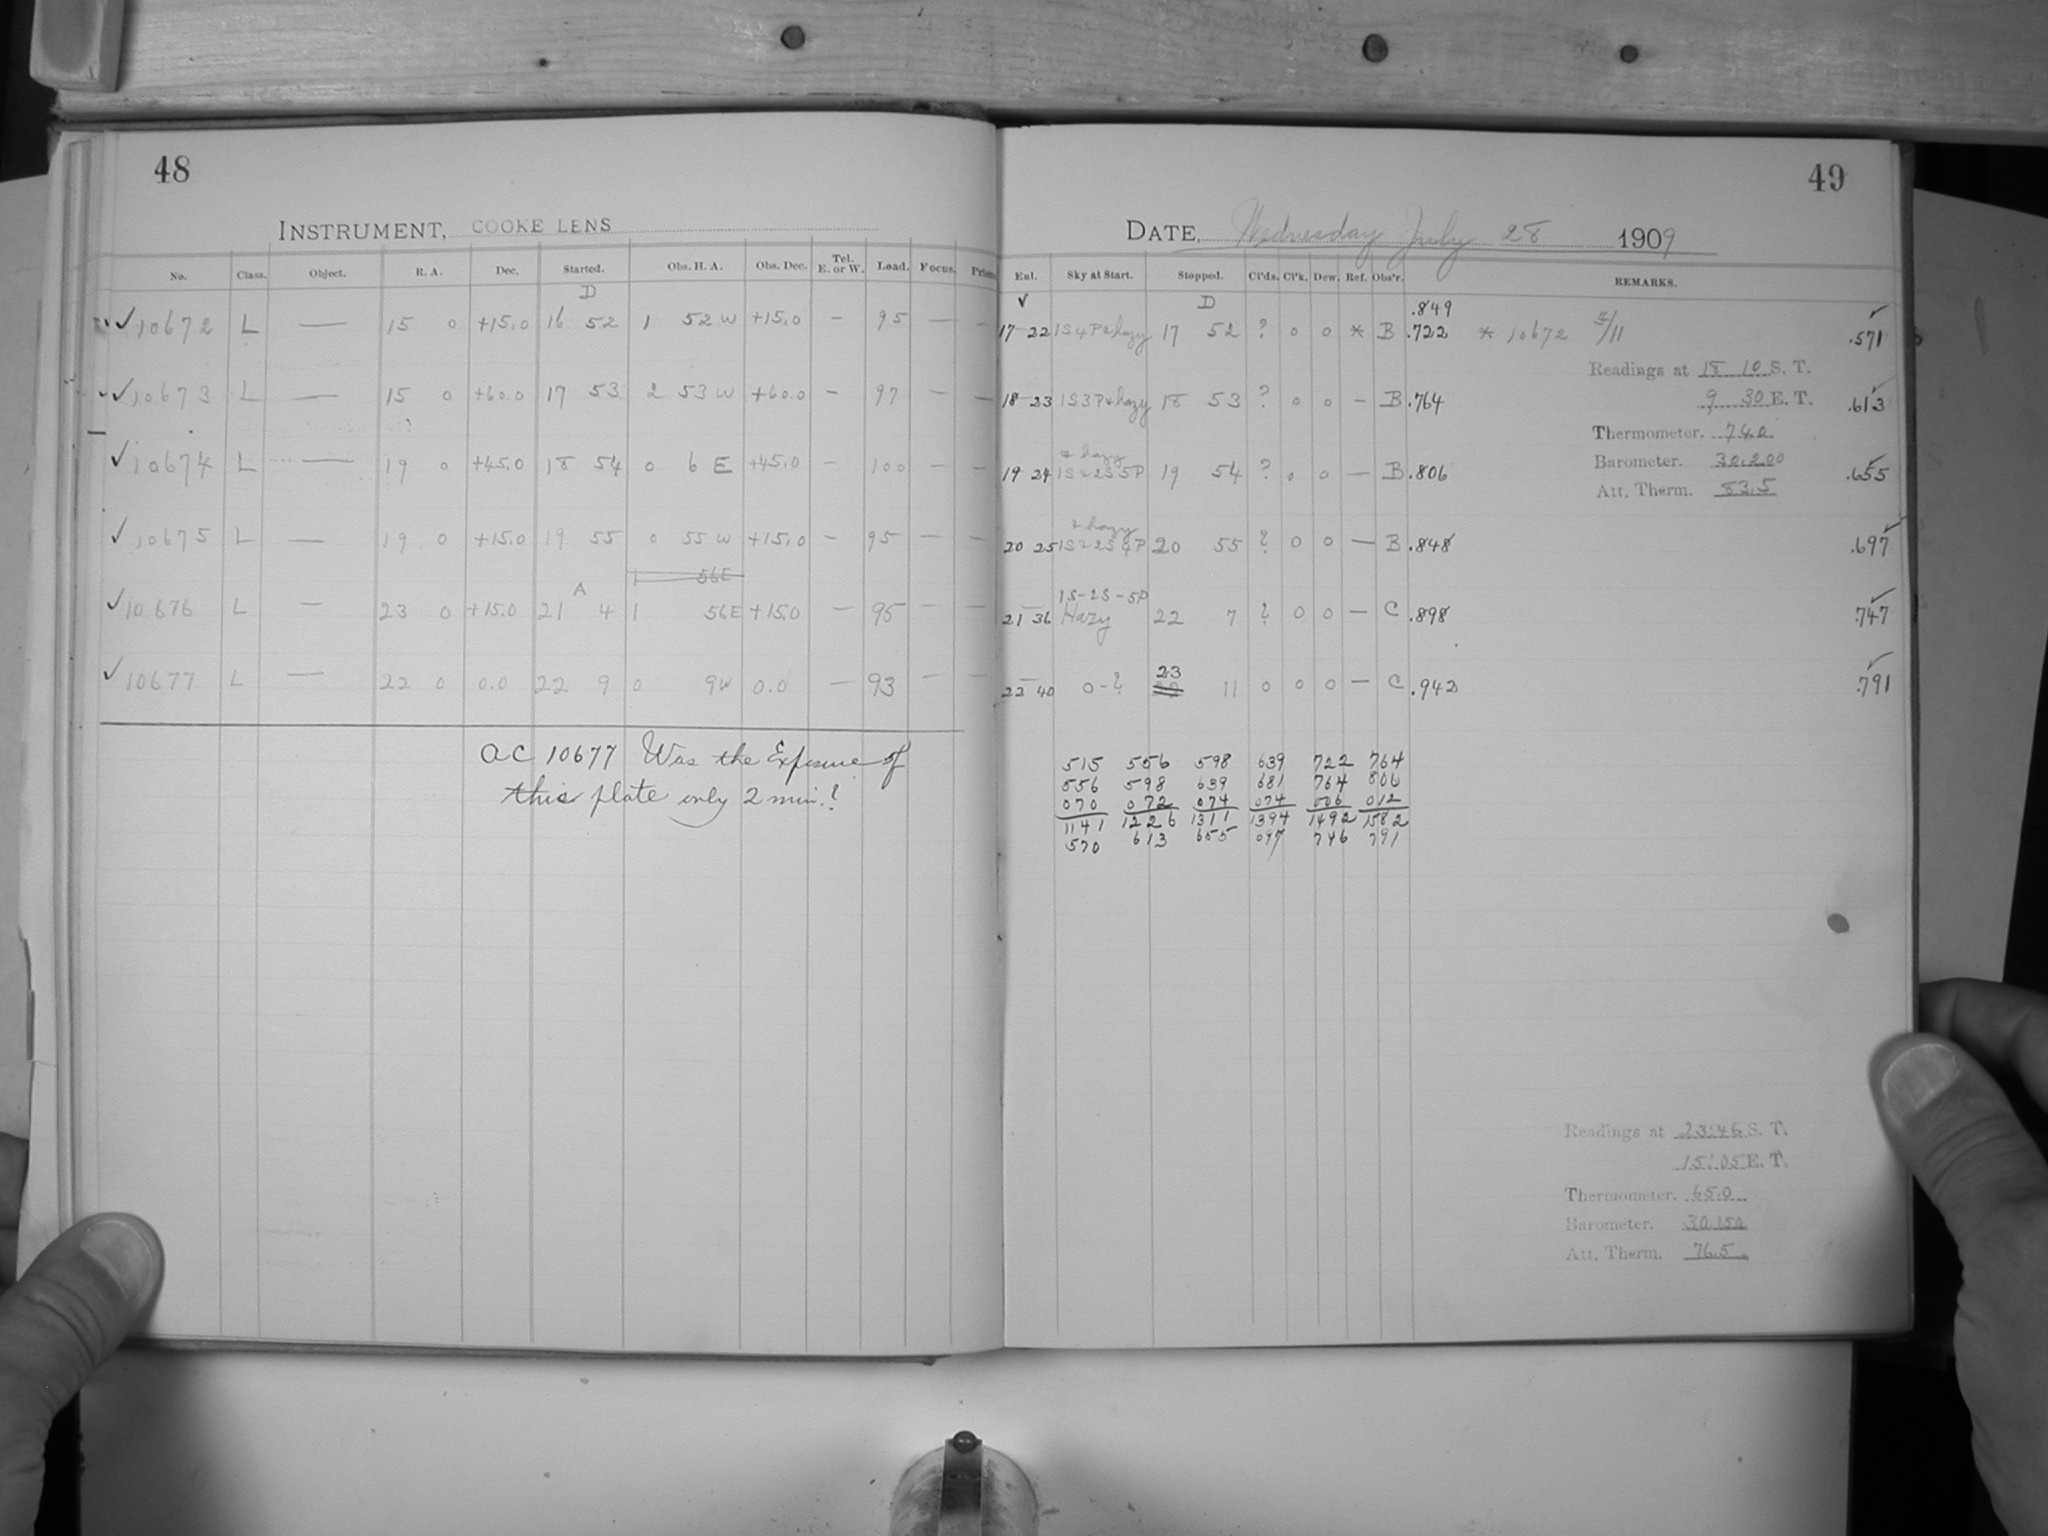 48
INSTRUMENT, COOKE LENS
No. Class. Object. R. A. Dec. Started. Obs. H. A. Obs. Dec. Tel. E. or W. Load. Focus. Prism
D
✓ 10672 L — 15 0 +15.0 16 52 1 52 W +15.0 – 95 — —
✓ 10673 L — 15 0 +60.0 17 53 2 53 W +60.0 – 97 — —
✓ 10674 L — 19 0 +45.0 18 54 0 6 E +45.0 – 100 — —
✓ 10675 L — 19 0 +15.0 19 55 0 55 W +15.0 – 95 — —
1 56E
A
✓ 10676 L — 23 0 +15.0 21 4 1 56E +15.0 — 95 — —
✓ 10677 L — 22 0 0.0 22 9 0 9W 0.0 — 93 — —
AC 10677 Was the Exposure of
this plate only 2 min.?
49
DATE, Wednesday July 28 1909
Enl. Sky at Start. Stopped. Cl'ds. Cl'k. Dew. Ref. Obs'r. REMARKS.
✓ D .849
17 22 1S4P & hazy 17 52 ? 0 0 * B .722 * 10672 5/11 .571
Readings at 18 10 S. T.
18 23 1S3P & hazy 18 53 ? 0 0 – B .764 9 30 E. T. .613
Thermometer. 74.0
& hazy
19 24 1S & 2S 5P 19 54 ? 0 0 — B .806 Barometer. 30.200 .655
Att. Therm. 83.5
& hazy
20 25 1S & 2S 4P 20 55 ? 0 0 — B .848 .697
1S-2S-5P
21 36 Hazy 22 7 ? 0 0 — C .898 .747
23
22 40 0-? 11 0 0 0 — C .942 .791
515 556 598 639 722 764
556 598 639 681 764 806
070 072 074 074 006 012
1141 1226 1311 1394 1492 1582
570 613 655 697 746 791
Readings at 23:46 S. T.
15:05 E. T.
Thermometer. 65.0
Barometer. 30.150
Att. Therm. 76.5